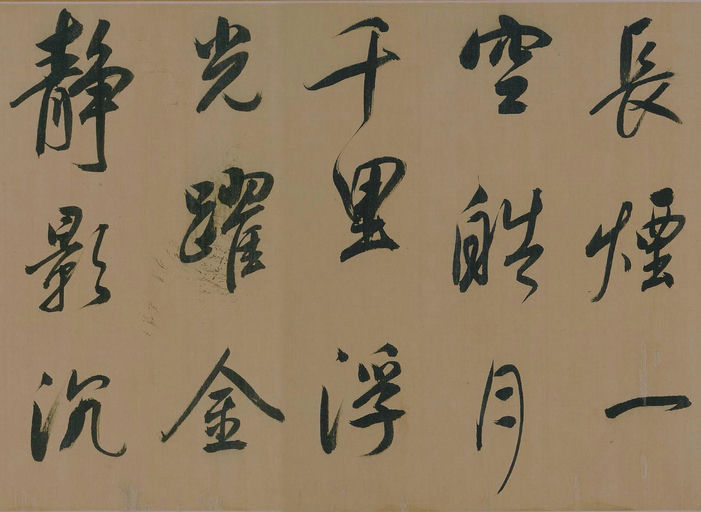 長煙一
空皓月
千里浮
光躍金
静影沉